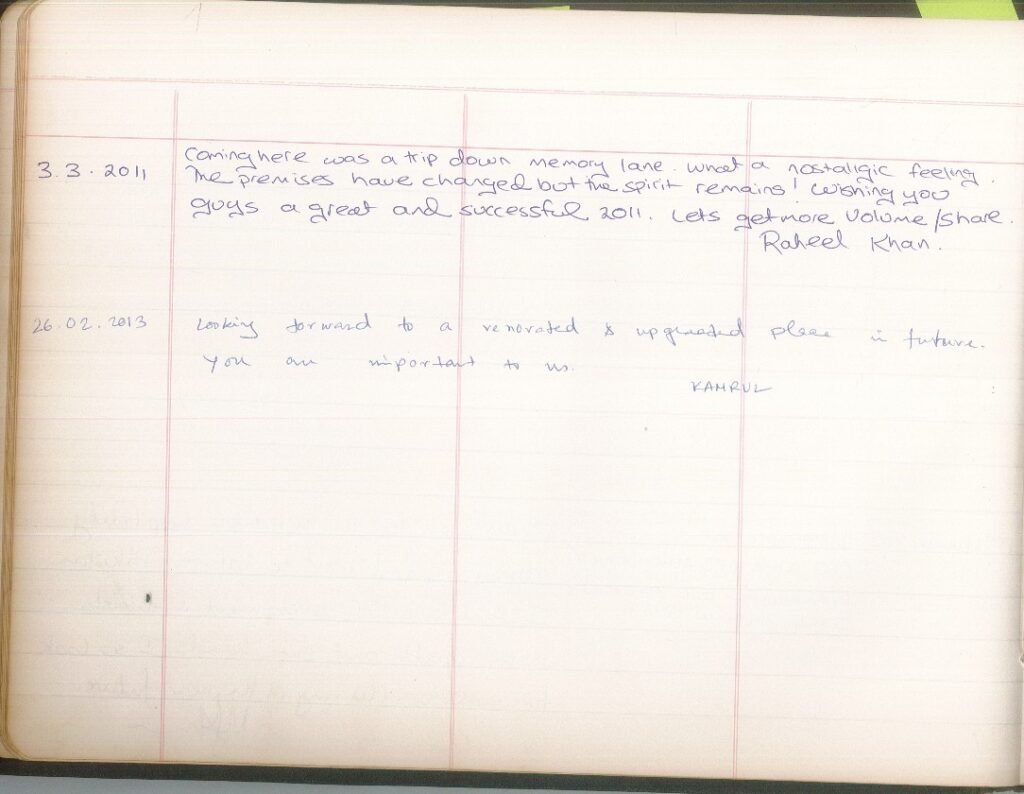 3.3.2011 Coming here was a trip down memory lane. What a nostaligic feeling.
The premises have changed but the spirit remains! Wishing you
guys a great and successful 2011. Lets get more volume/share.
Raheel Khan.
26.02.2013 Looking forward to a renovated & upgraded place in future.
You are important to us.
KAMRUL